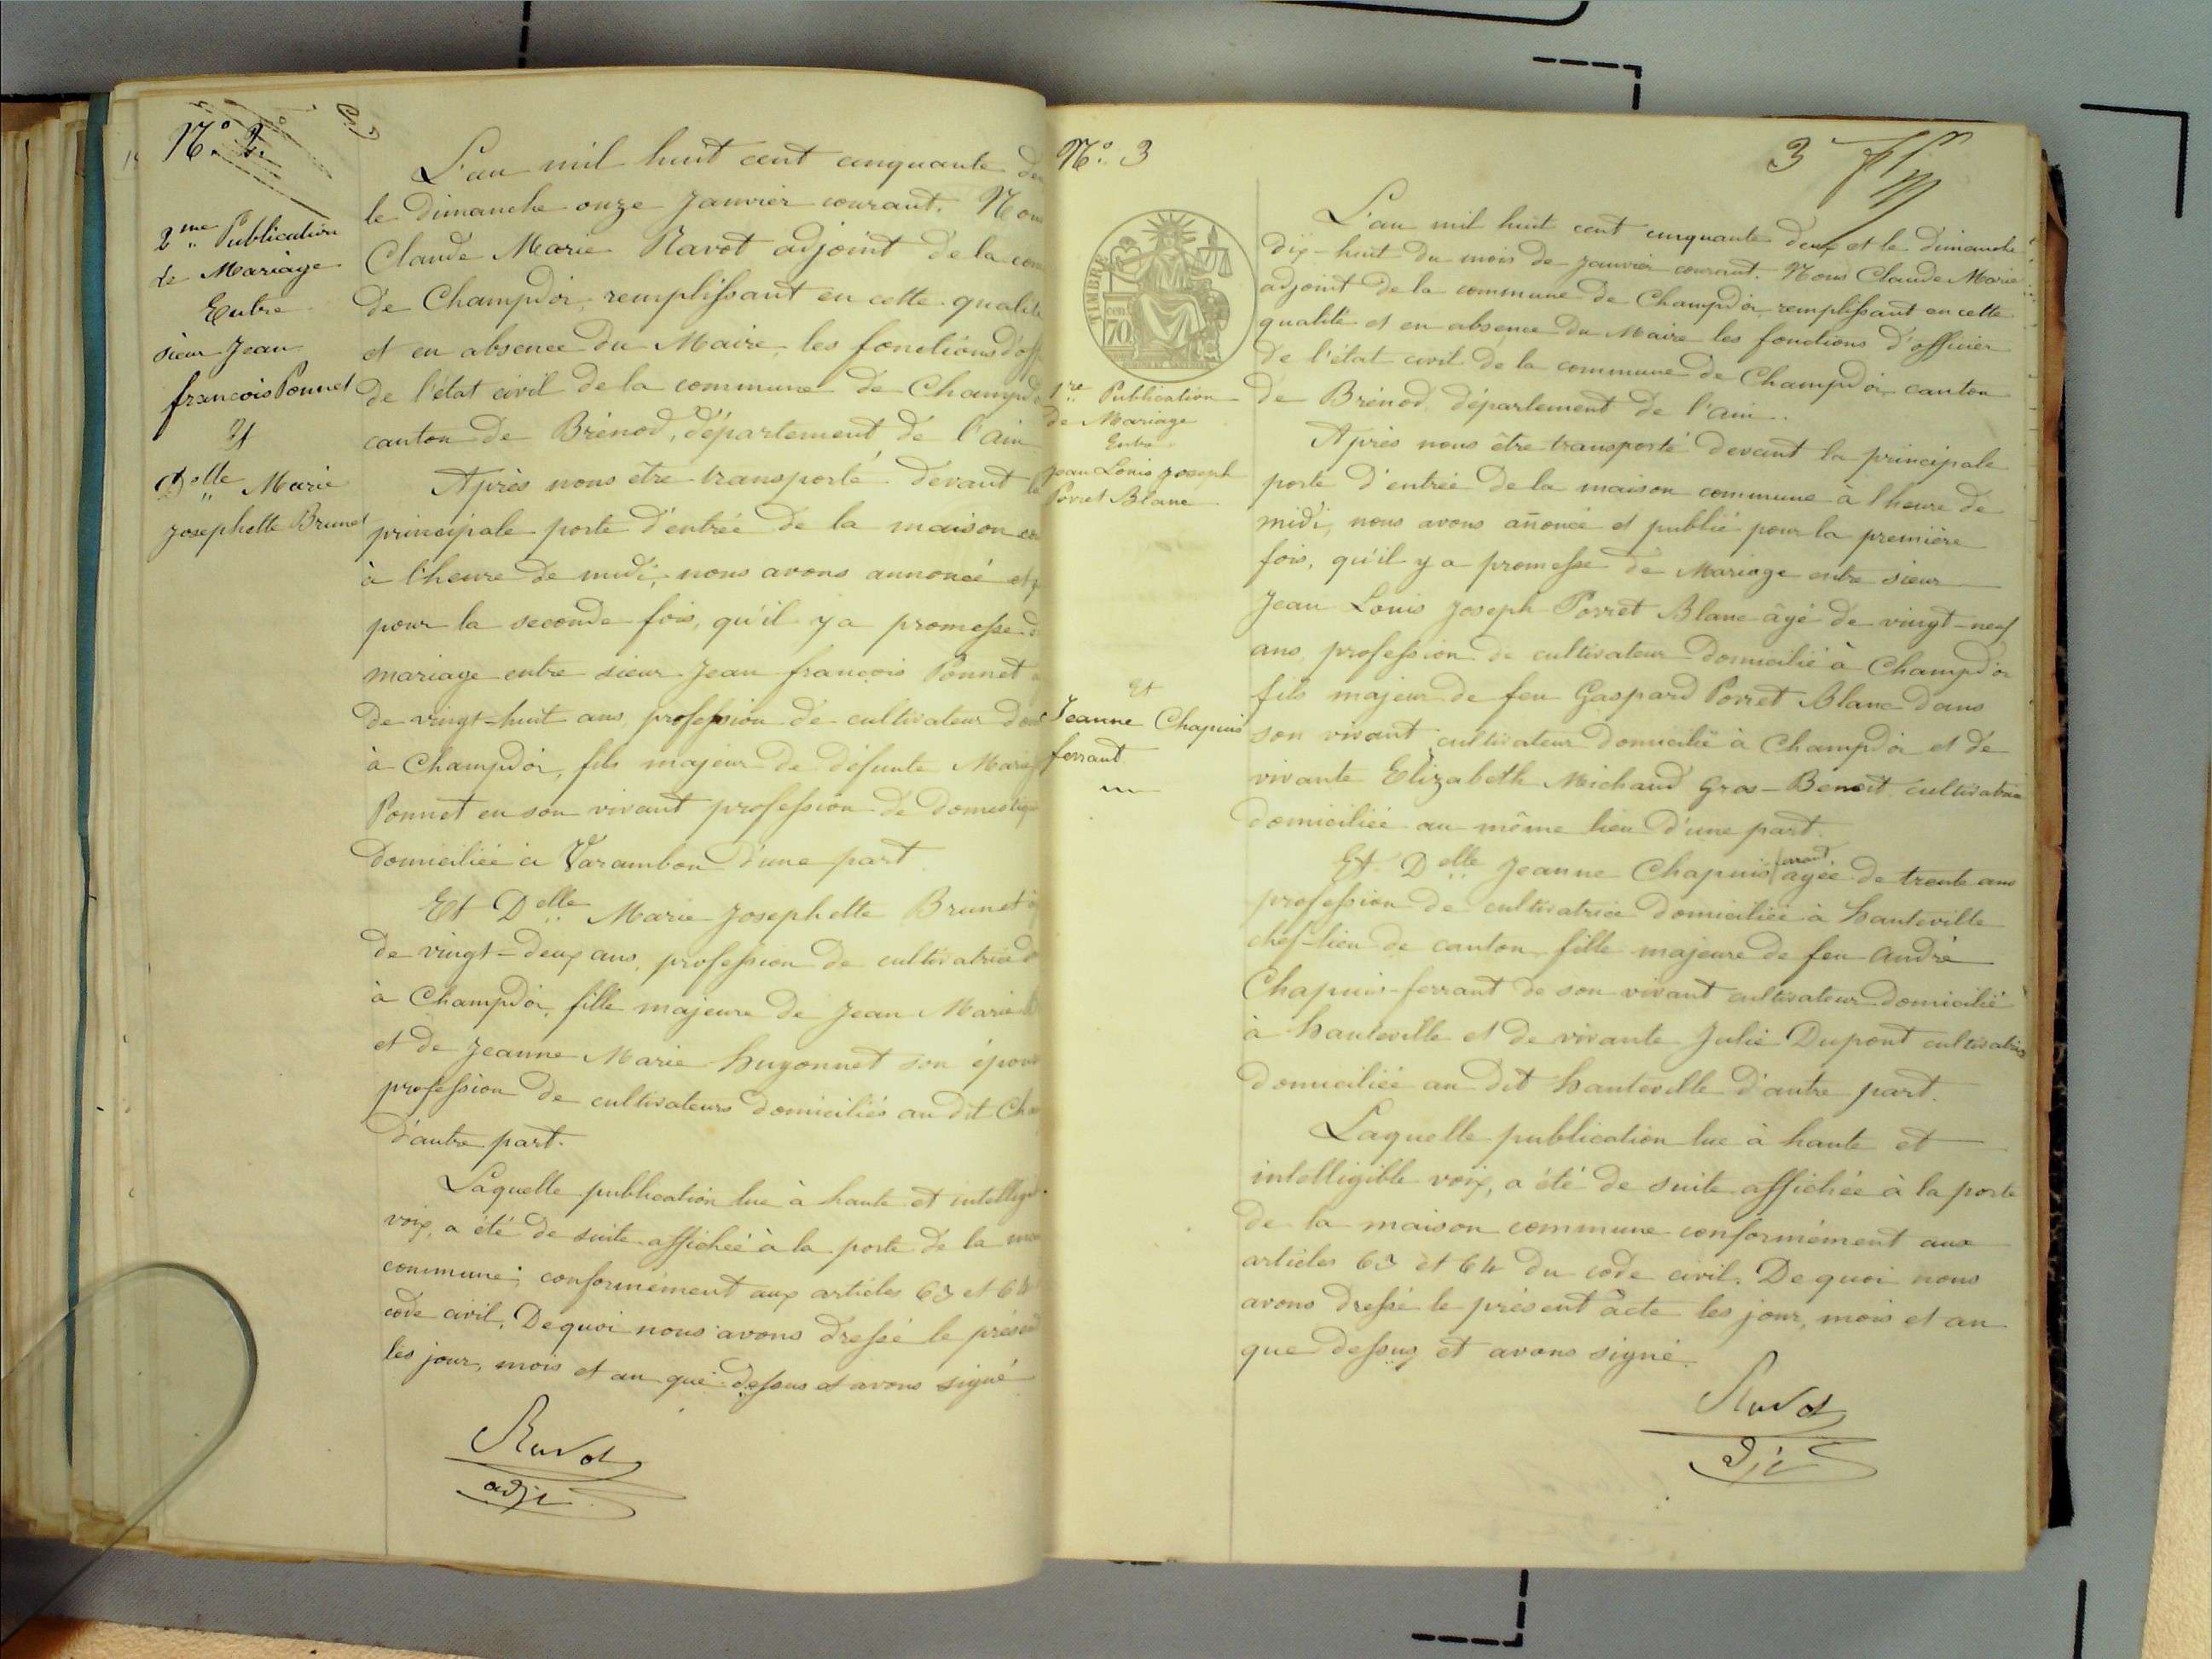 N.º 2.
2.me Publication
de Mariage
Entre
sieur Jean
françois Ponnet
Et
Delle Marie
Josephette Brunet
L'an mil huit cent cinquante
le Dimanche onze Janvier courant. Nous
Claude Marie Ravot adjoint de la
de Champdor, remplissant en cette qualité
et en absence du Maire, les fonctions d'off
de l'état civil de la commune de Champdo
canton de Brénod, département de l'ain
Après nous être transporté devant la
principale porte d'entrée de la maison
à l'heure de midi, nous avons annoncé et
pour la seconde fois, qu'il y a promesse
mariage entre sieur Jean françois Ponnet
de vingt-huit ans, profession de cultivateur
à Champdor, fils majeur de défunte Marie
Ponnet en son vivant profession de domestique
Domiciliée à Varambon d'une part.
Et Delle Marie Josephette Brunet
de vingt-deux ans, profession de cultivatrice
à Champdor, fille majeure de Jean Marie
et de Jeanne Marie huyonnet son épouse
profession de cultivateurs domiciliés au dit Cha
d'autre part.
Laquelle publication lue à haute et intelligi
voix, a été de suite affichée à la porte de la
commune; conformément aux articles 63 et 64
code civil. De quoi nous avons dressé le présent
les jour, mois et an que dessus et avons signé
Ravot
adjt
N.º 3
3
TIMBRE
70
1re Publication
de Mariage
Entre
Jean Louis Joseph
Porret Blanc
Et
Jeanne Chapuis
ferrant
L'an mil huit cent cinquante deux et le dimanche
dix-huit du mois de Janvier courant. Nous Claude Marie
adjoint de la commune de Champdor, remplissant en cette
qualité et en absence du Maire les fonctions d'officier
de l'état civil de la commune de Champdor, canton
de Brénod, département de l'ain.
Après nous être transporté devant la principale
porte d'entrée de la maison commune à l'heure de
midi, nous avons añoncé et publié pour la première
fois, qu'il y a promesse de Mariage entre sieur
Jean Louis Joseph Porret Blanc âgé de vingt-neuf
ans, profession de cultivateur domicilié à Champdor
fils majeur de feu Gaspard Porret Blanc dans
son vivant cultivateur domicilié à Champdor et de
vivante Elizabeth Michaud Gros-Benoit cultivatrice
domiciliée au même lieu d'une part.
Et Delle Jeanne Chapuis ferrant âgée de trente ans
profession de cultivatrice domiciliée à hauteville
chef-lieu de canton, fille majeure de feu André
Chapuis-ferrant de son vivant cultivateur domicilié
à hauteville et de vivante Julie Dupont cultivatrice
domiciliée au dit hauteville d'autre part.
Laquelle publication lue à haute et
intelligible voix, a été de suite affichée à la porte
de la maison commune conformément aux
articles 63 et 64 du code civil. De quoi nous
avons dressé le présent acte les jour, mois et an
que dessus et avons signé.
Ravot
djt